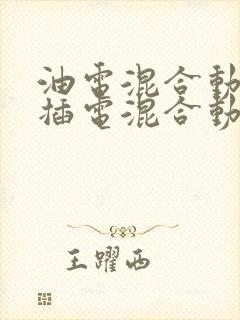 油電混合動
插電混合動
王躍西